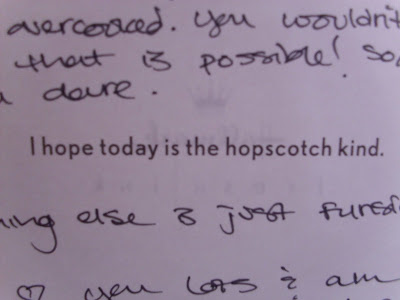 overcooked. You wouldn't
that is possible! So
dare.
I hope today is the hopscotch kind.
else is just
you lots & am